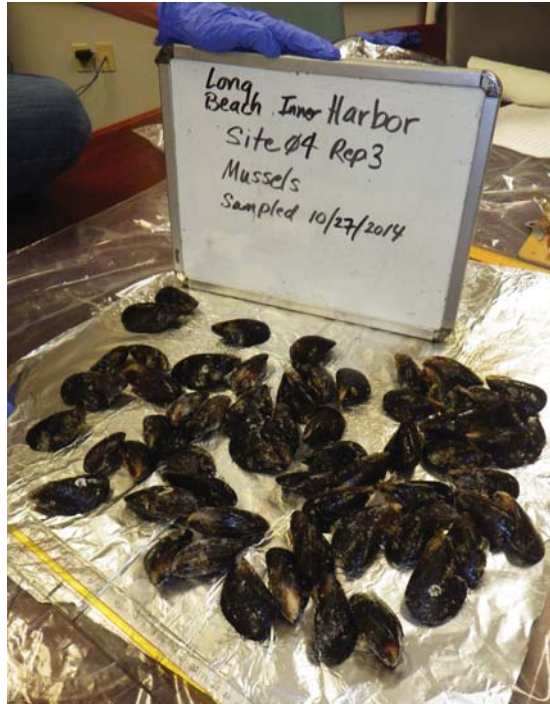 Long
Beach Inner Harbor
Site Ø4 Rep3
Mussels
Sampled 10/27/2014